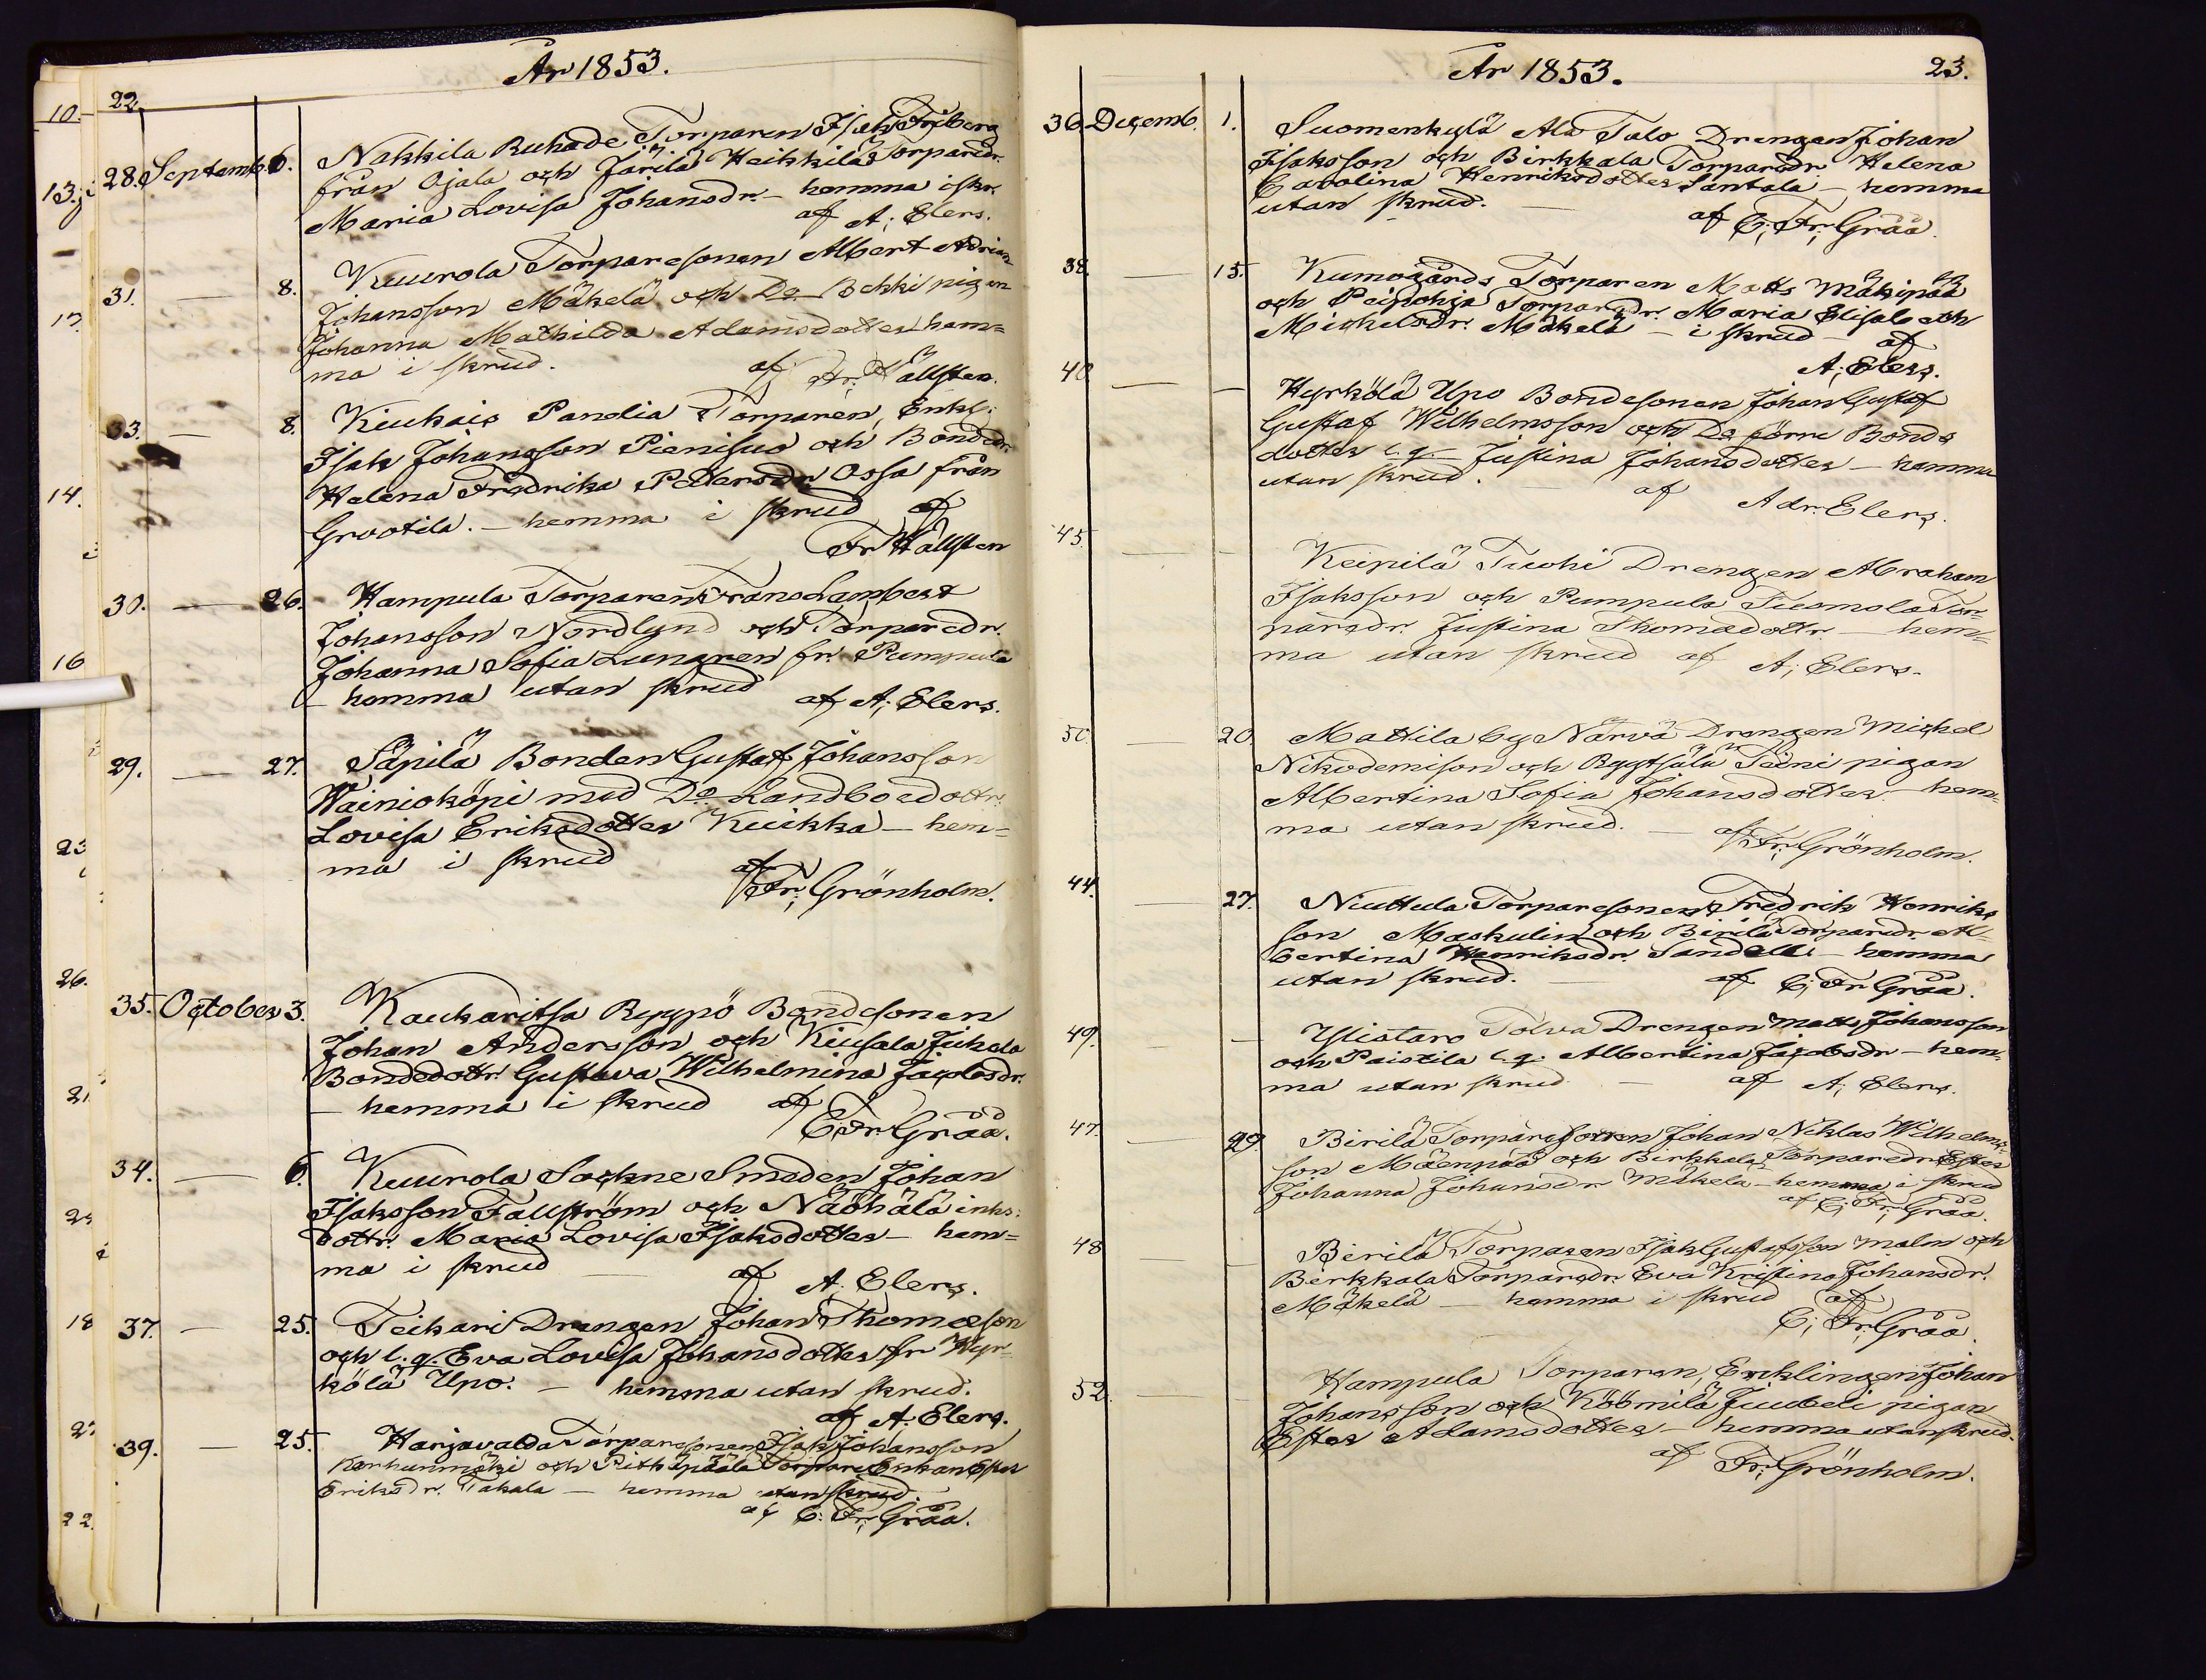 År 1853.
22.
28. Septemb. 6. Nakkila Ruhade Torparen Isak Friberg
från Ojala och Järilä Heikkilä Torparedr.
Maria Lovisa Johansdr. - hemma i skr.
af A; Elers.
31. — 8. Kuurola Torparesonen Albert Adrian
Johansson Mäkelä och Do Bekki pigan
Johanna Mathilda Adamsdotter hem=
ma i skrud. af Fr. Hällsten.
33. — 8. Kiukais Panelia Torparen, Enkl:
Isak Johansson Pienisuo och Bondedr.
Helena Fredrika Petersdr. Ossa från
Grootila. - hemma i skrud af
Fr Hällsten
30. — 26. Hampula Torparen Frans Lambert
Johansson Nordlynd och Torparedr.
Johanna Sofia Lungren fr. Pumpula
- hemma utan skrud af A; Elers.
29. — 27. Säpilä Bonden Gustaf Johansson
Wainioköpi med Do Landboedottr.
Lovisa Eriksdotter Kuikka - hem=
ma i skrud af
Fr; Grönholm.
35. October 3. Kaukaritsa Ryypö Bondesonen
Johan Andersson och Kiusala Jukola
Bondedottr. Gustava Wilhelmina Jacobsdr.
- hemma i skrud af
C; Fr. Gråå.
34. — 6. Kuurola Sockne Smeden Johan
Isaksson Fallström och Näähälä inhs:
dottr. Maria Lovisa Isaksdotter - hem=
ma i skrud af A. Elers.
37. — 25. Teikari Drengen Johan Thomæson
och l. q. Eva Lovisa Johansdotter fr Hyr-
kölä Upo. - hemma utan skrud.
af A. Elers.
39. — 25. Harjavalda Torparesonen Isak Johansson
Karhunmäki och Pithäpäälä Torpare Enkan Ester
Eriksdr. Takala - hemma utan skrud.
af C: Fr; Gråå.
År 1853. 23.
36. Decemb. 1. Suomenkylä Ala Talo Drengen Johan
Isaksson och Birkkala Torparedr. Helena
Carolina Henriksdotter Santala - hemma
utan skrud. - af C; Fr; Gråå.
38. — 15. Kumogårds Torparen Matts Mäkipää
och Peipohja Torparedr. Maria Elisabeth
Mickelsdr. Mäkelä - i skrud - af
A; Elers.
40. — — Hyrkölä Upo Bondesonen Johan Gustaf
Gustaf Wilhelmsson och Do förre Bonde
dotter l. q. Justina Johansdotter - hemma
utan skrud. - af Adr. Elers.
45. — — Keipilä Tuohi Drengen Abraham
Isaksson och Pumpula Tuomola Tor-
paredr. Justina Thomædottr. - hem=
ma utan skrud af A; Elers.
50. — 20. Mattila by Närvä Drengen Mickel
Nikodemison och Ryytsälä Teini pigan
Albertina Sofia Johansdotter - hem=
ma utan skrud. - af Fr; Grönholm.
44. — 27. Niuttula Torparesonen Fredrik Henriks
son Maskulin och Birilä Torparedr. Al=
bertina Henriksdr. Sandell - hemma
utan skrud. - af C; Fr Gråå.
49. — — Ylistaro Tolva Drengen Matts Johansson
och Paistila l. q. Albertina Jacobsdr - hem=
ma utan skrud - af A; Elers.
47. — 29. Birilä Torparesonen Johan Niklas Wilhelms-
son Mäenpää och Birkkala Torparedr Ester
Johanna Johansdr Mäkelä - hemma i skrud
af C; Fr; Gråå.
48 — — Birilä Torparen Isak Gustafsson Malm och
Birkkala Torparedr. Eva Kristina Johansdr.
Mäkelä - hemma i skrud af
C; Fr; Gråå.
52. — — Hampula Torparen, Enklingen Johan
Johansson och Köömilä Juubeli pigan
Ester Adamsdotter - hemma utan skrud.
af Fr; Grönholm.